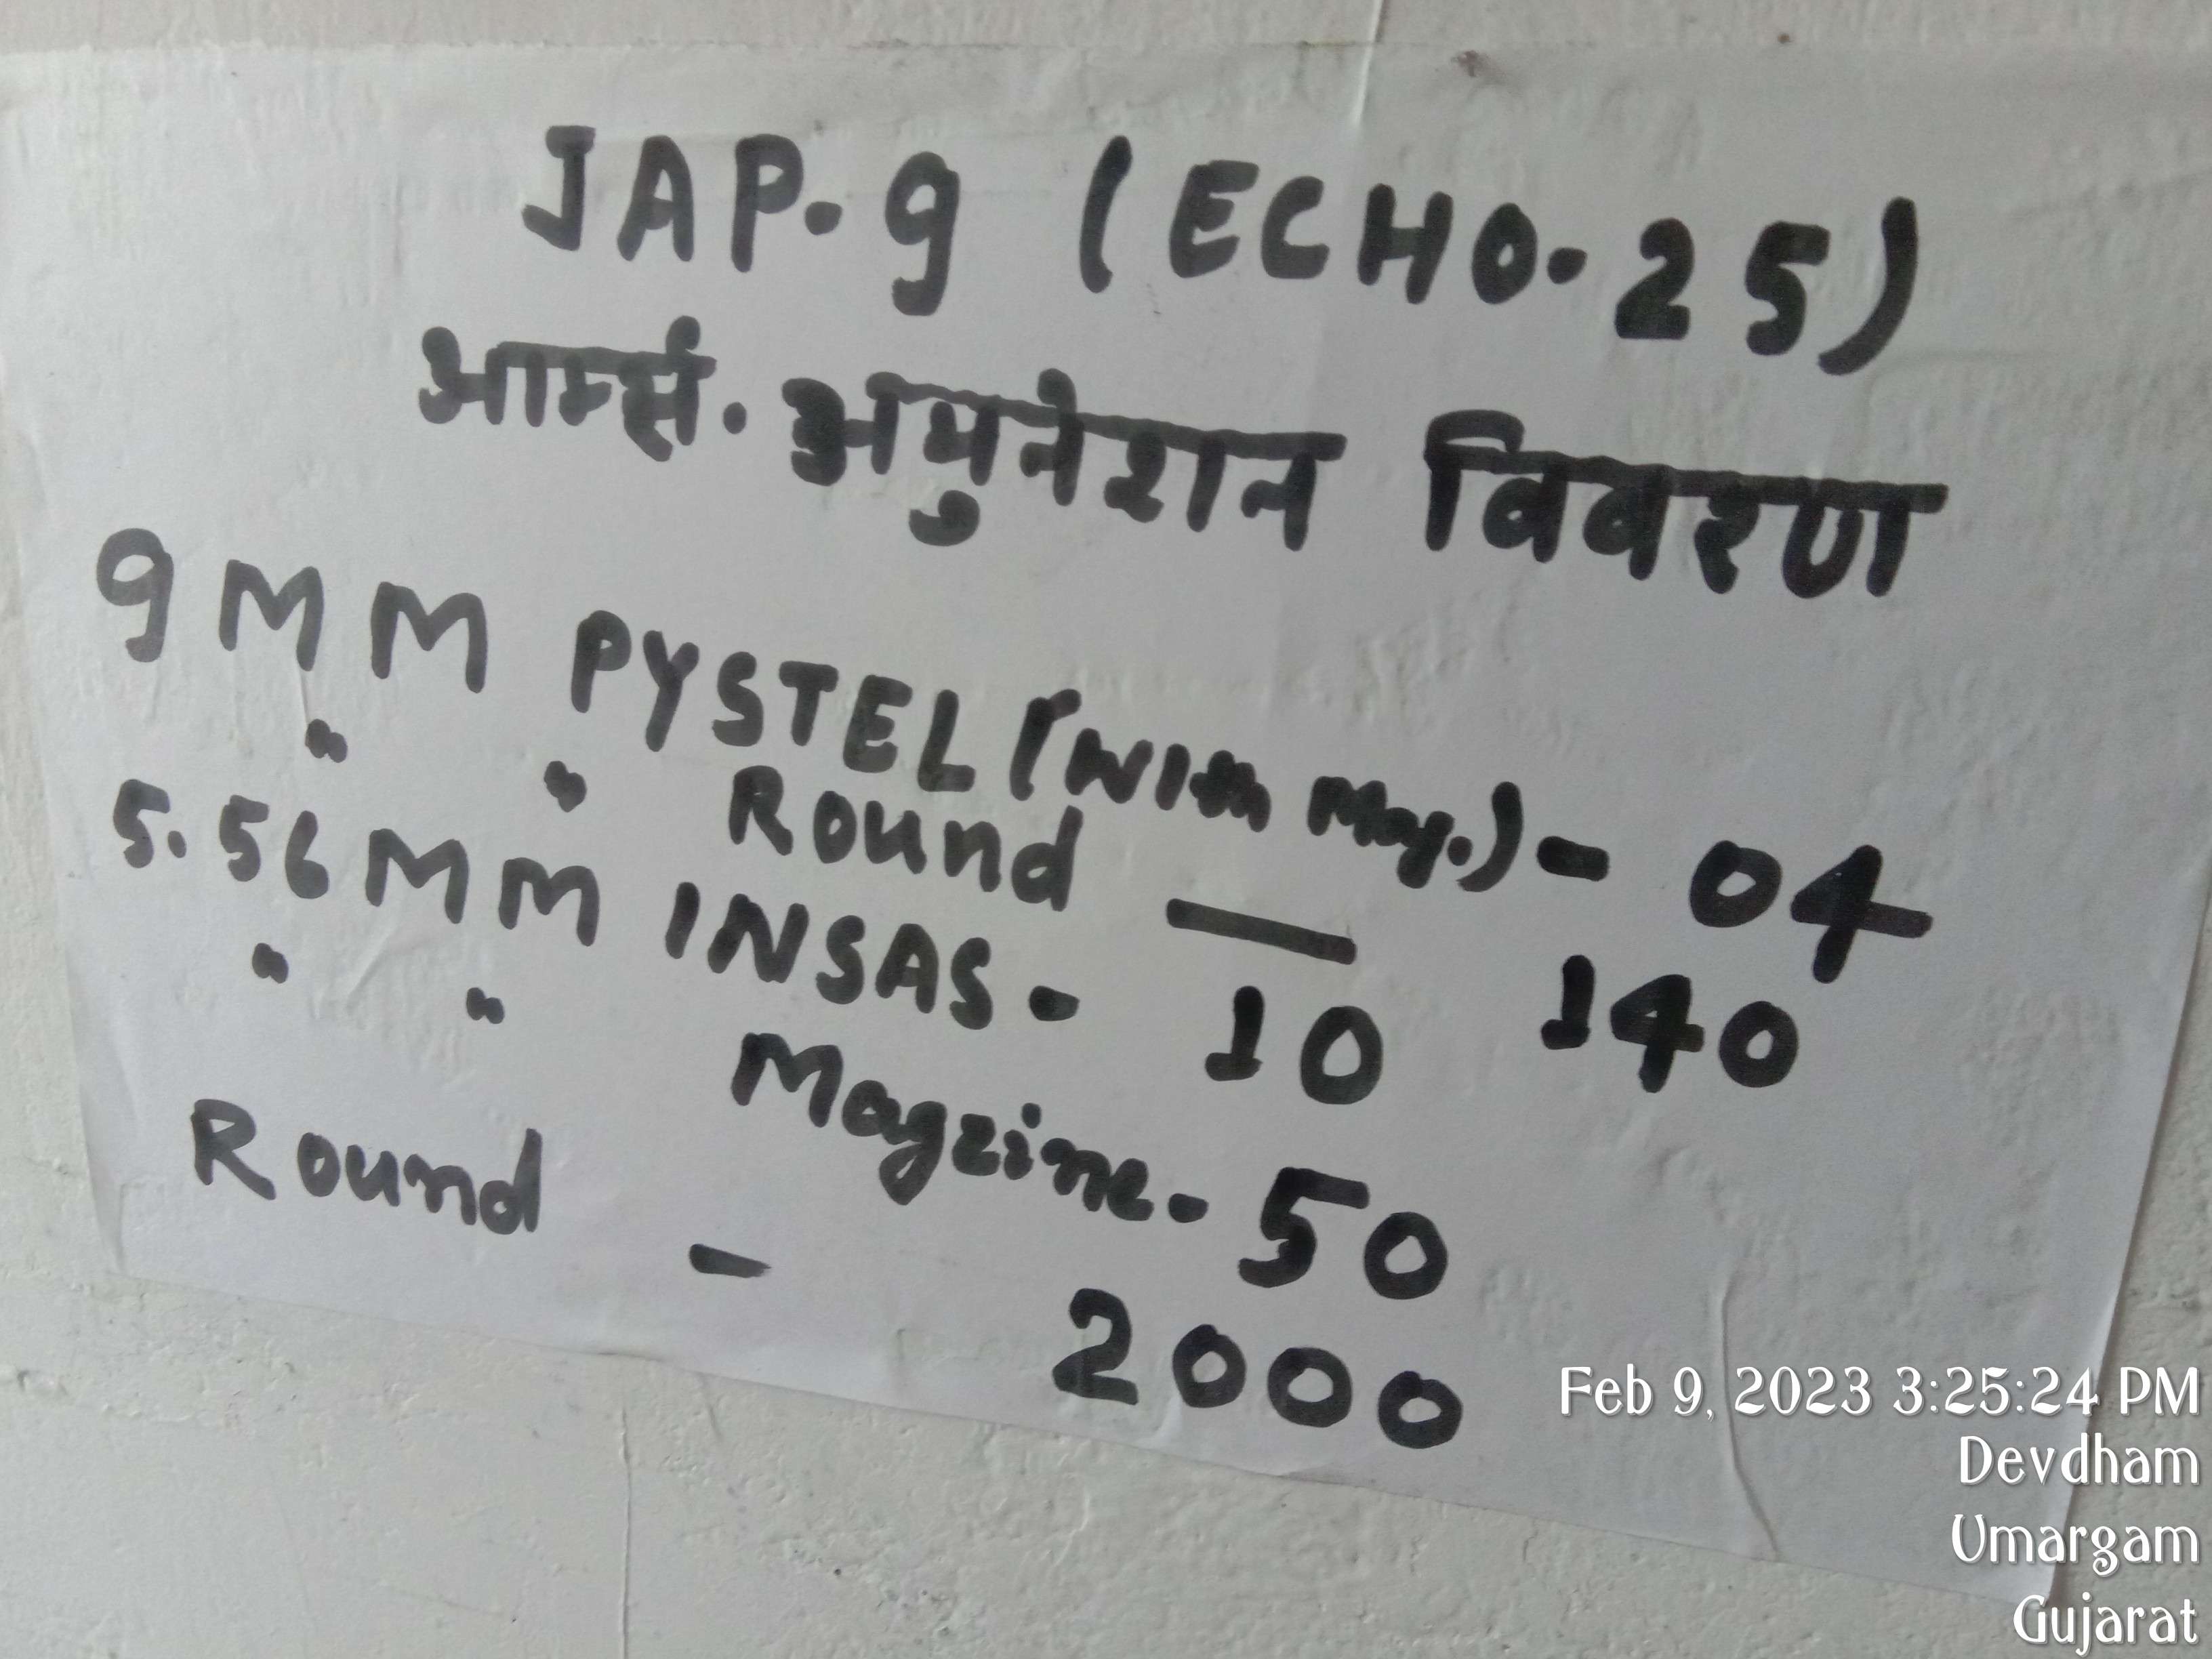 JAP.9 (ECHO.25)
आर्म्स. अमुनेशन विवरण
9MM PYSTEL (With Mag.) - 04
" " Round — 140
5.56MM INSAS - 10
" " Magzine - 50
Round - 2000
Feb 9, 2023 3:25:24 PM
Devdham
Umargam
Gujarat